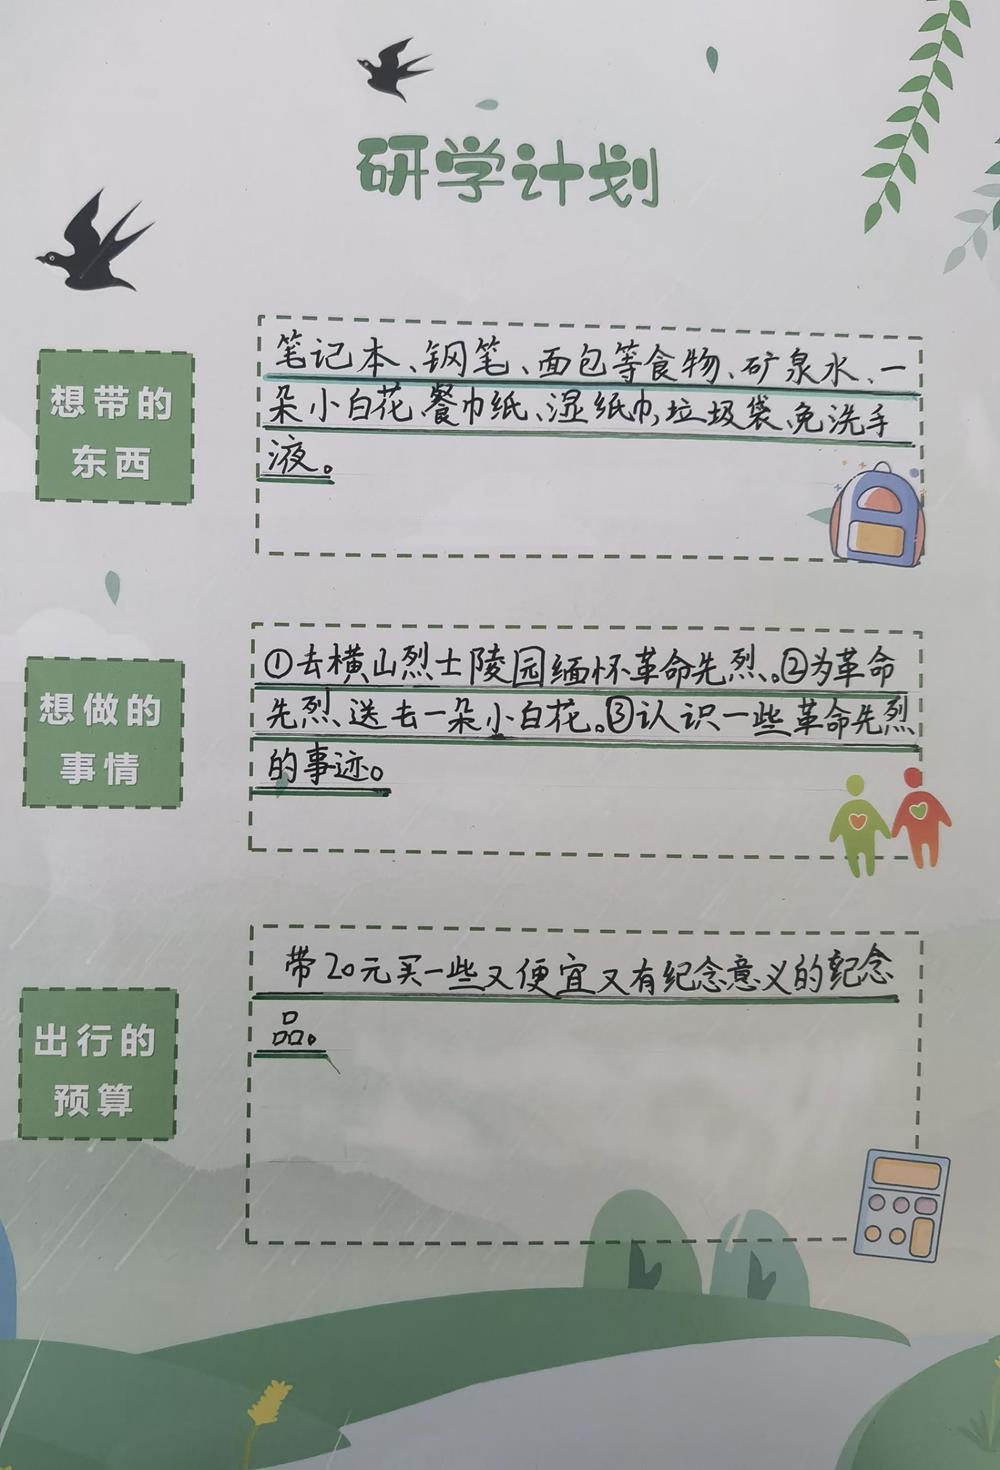 研学计划
想带的
东西
笔记本、钢笔、面包等食物、矿泉水、一
朵小白花、餐巾纸、湿纸巾,垃圾袋、免洗手
液。
想做的
事情
①去横山烈士陵园缅怀革命先烈。②为革命
先烈、送去一朵小白花。③认识一些革命先烈
的事迹。
出行的
预算
带20元买一些又便宜又有纪念意义的纪念
品。